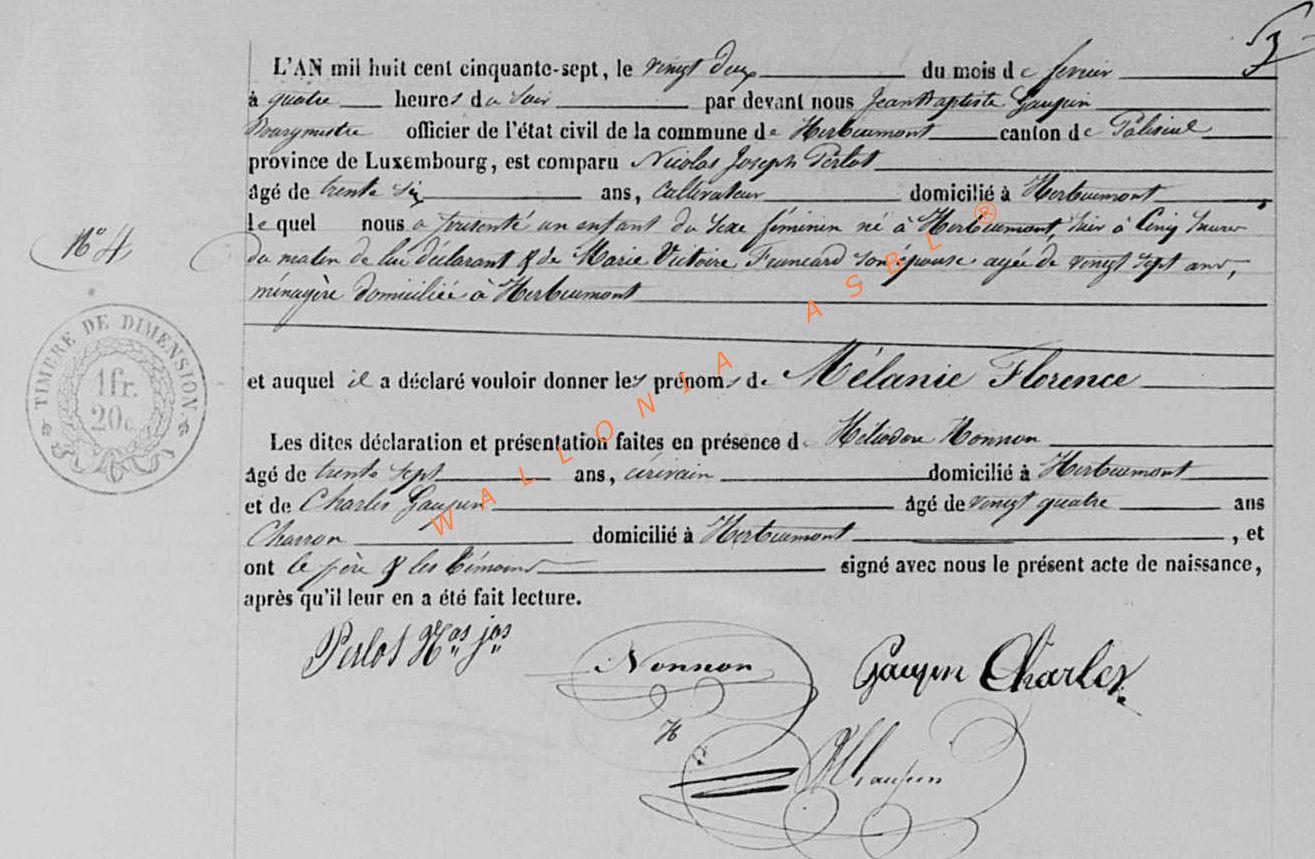 L'AN mil huit cent cinquante-sept, le vingt deux du mois de fevrier
à quatre heures du soir par devant nous Jean Baptiste Gaupin
Bourgmestre officier de l'état civil de la commune de Herbeumont canton de Paliseul
province de Luxembourg, est comparu Nicolas Joseph Perlot
âgé de trente six ans, Cultivateur domicilié à Herbeumont,
le quel nous a présenté un enfant du sexe féminin né à Herbeumont, hier à Cinq heures
du matin de lui déclarant & de Marie Victoire Funcard son épouse agée de vingt sept ans,
ménagère domiciliée à Herbeumont
N° 4
TIMBRE DE DIMENSION
1fr.
20c.
et auquel il a déclaré vouloir donner les prénoms de Mélanie Florence
Les dites déclaration et présentation faites en présence d Héliodore Nonnon
âgé de trente sept ans, écrivain domicilié à Herbeumont
et de Charles Gaupin âgé de vingt quatre ans
Charron domicilié à Herbeumont, et
ont le père & les témoins signé avec nous le présent acte de naissance,
après qu'il leur en a été fait lecture.
Perlot Nas jos
Nonnon
Gaupin Charles
H
Gaupin
WALLONIA ASBL ®